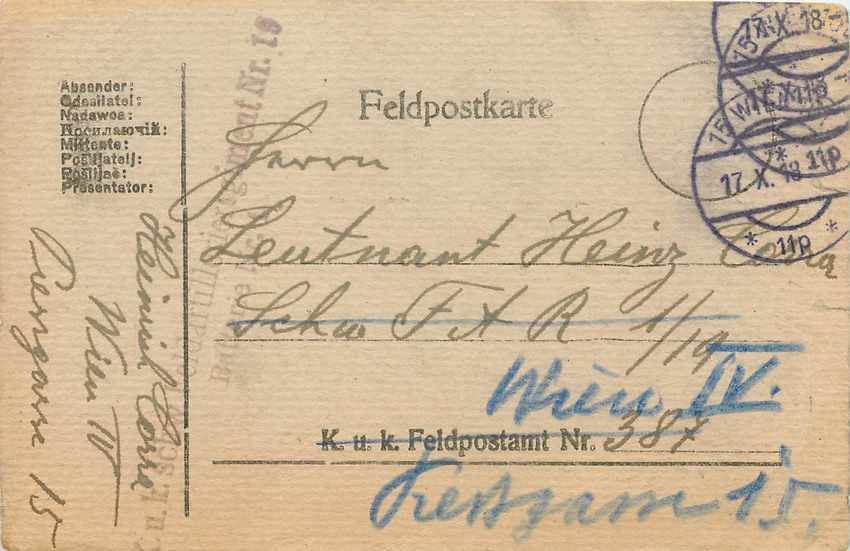 Feldpostkarte
Absender:
Odesílatel:
Nadawca:
Посилаючій:
Mittente:
Pošiljatelj:
Pošiljač:
Presentator:
Herrn
Leutnant Heinz
Schw F A R 1/19
Wien IV.
K. u. k. Feldpostamt Nr. 387
Pressgasse 15.
Heinrich
Wien IV
Pressgasse 15
K. u. k. schw. Feldartillerieregiment Nr. 19
Batterie Nr.
17. X. 18
15 WIEN
17. X. 18
11P